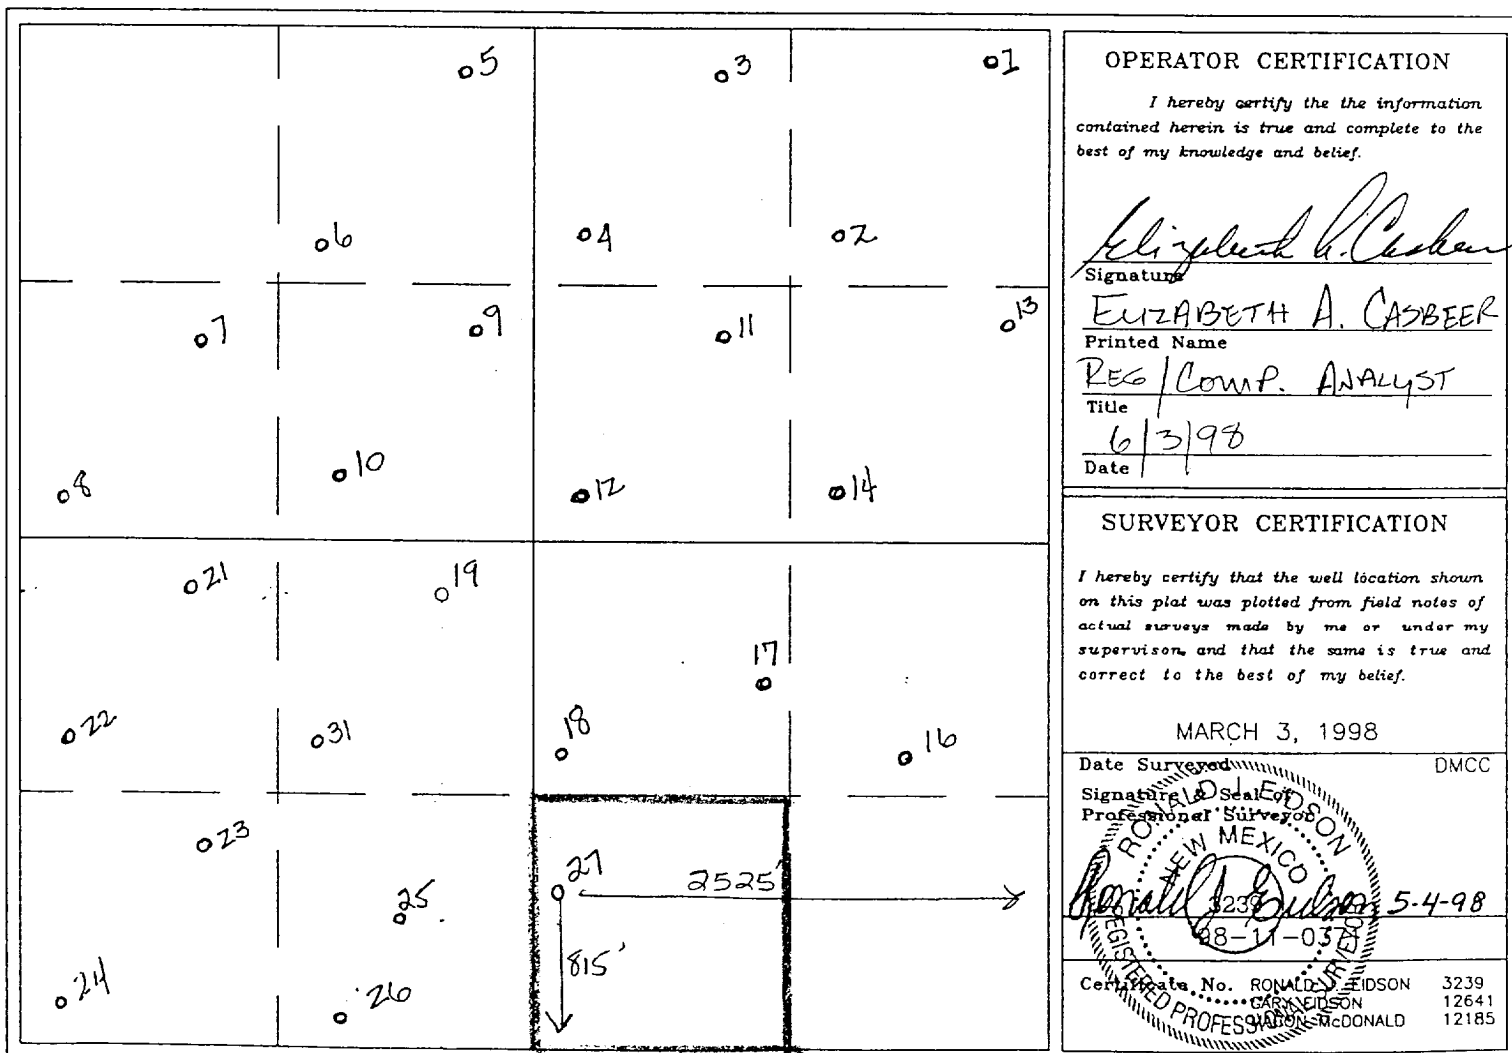 5
3
1
6
4
2
7
9
11
13
8
10
12
14
21
19
17
22
31
18
16
23
27
2525'
25
815'
24
26
OPERATOR CERTIFICATION
I hereby certify the the information
contained herein is true and complete to the
best of my knowledge and belief.
Elizabeth A. Casbeer
Signature
ELIZABETH A. CASBEER
Printed Name
REG / COMP. ANALYST
Title
6/3/98
Date
SURVEYOR CERTIFICATION
I hereby certify that the well location shown
on this plat was plotted from field notes of
actual surveys made by me or under my
supervison, and that the same is true and
correct to the best of my belief.
MARCH 3, 1998
Date Surveyed DMCC
Signature & Seal of
Professional Surveyor
RONALD J. EIDSON
NEW MEXICO
3239
REGISTERED PROFESSIONAL SURVEYOR
Ronald J. Eidson 5-4-98
98-11-0374
Certificate No. RONALD J. EIDSON 3239
GARY EIDSON 12641
McDONALD 12185